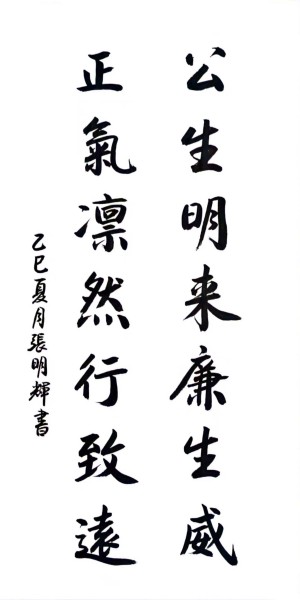 公生明来廉生威
正氣凛然行致遠
乙巳夏月張明輝書